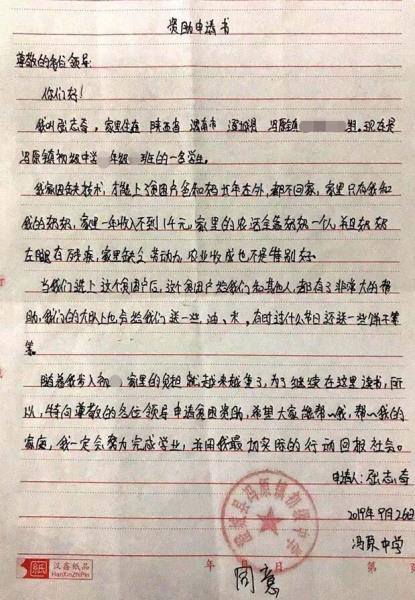 资助申请书
尊敬的各位领导:
你们好!
我叫张志奇,家里住在 陕西省 渭南市 澄城县 冯原镇 组.现在是
冯原镇初级中学 年级 班的一名学生。
我家因缺技术,才能上贫困户爸和妈长年在外,都不回家,家里只有我和
我的奶奶,家里一年收入不到1千元。家里的农活全靠奶奶一个人,并且奶奶
左腿有残疾,家里缺乏劳动力,农业收成也不是特别好。
当我们选上这个贫困户后,这个贫困户给我们和其他人,都有了非常大的帮
助,我们的大队上也会给我们送一些油、米,有时过什么节日还送一些饼干等
等。
随着我步入初 家里的负担就越来越重了,为了继续在这里读书,所
以,特向尊敬的各位领导申请贫困资助,希望大家能帮一我,帮一我的
家庭,我一定会努力完成学业,并用我最加实际的行动回报社会。
申请人:张志奇
2019年9月26日
冯原中学
澄城县冯原镇初级中学
同意
年 月 日 第 页
纸 汉鑫纸品
HanXinZhiPin